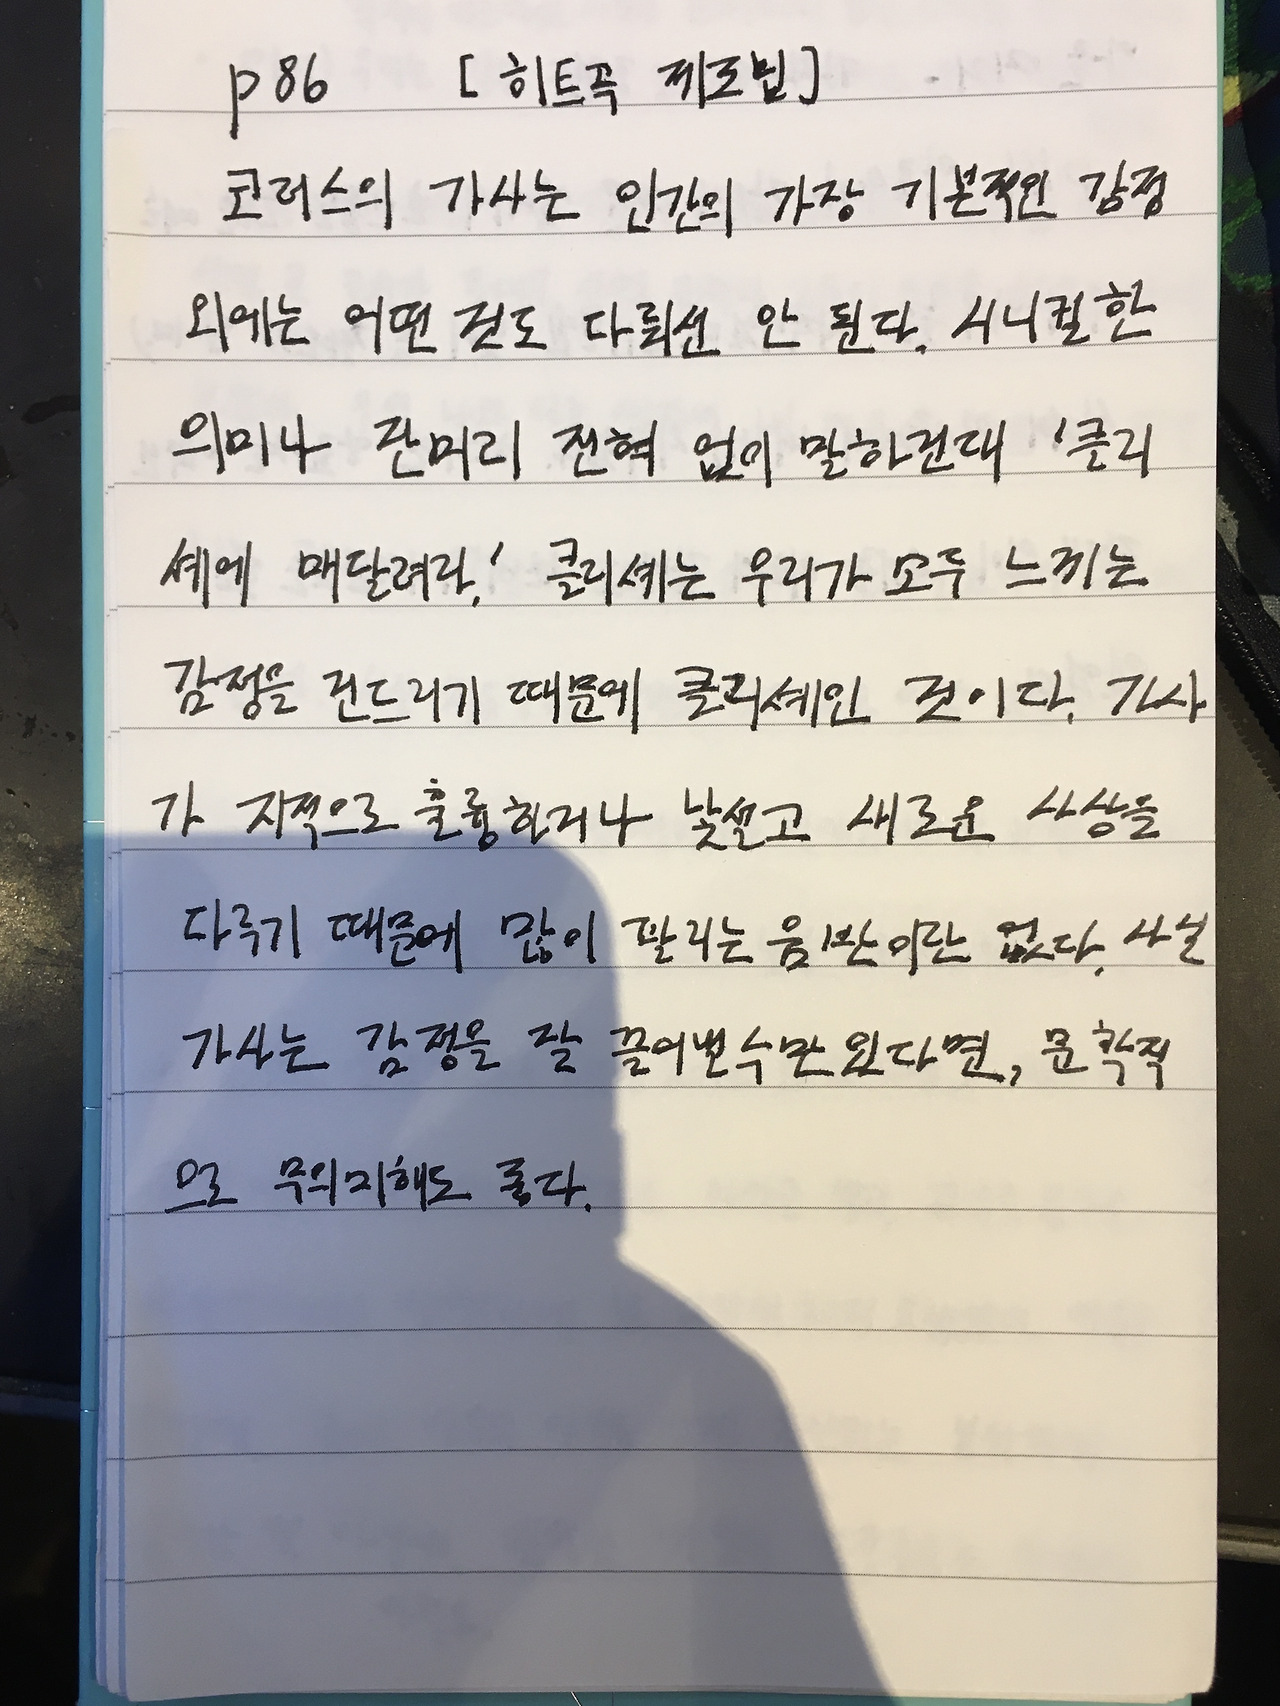 p86 [히트곡 제조법]
코러스의 가사는 인간의 가장 기본적인 감정
외에는 어떤 것도 다뤄선 안 된다. 시니컬한
의미나 잔머리 전혀 없이 말하건대 '클리
셰에 매달려라.' 클리셰는 우리가 모두 느끼는
감정을 건드리기 때문에 클리셰인 것이다. 가사
가 지적으로 훌륭하거나 낯설고 새로운 사상을
다루기 때문에 많이 팔리는 음반이란 없다. 사실
가사는 감정을 잘 끌어낼 수만 있다면, 문학적
으로 무의미해도 좋다.